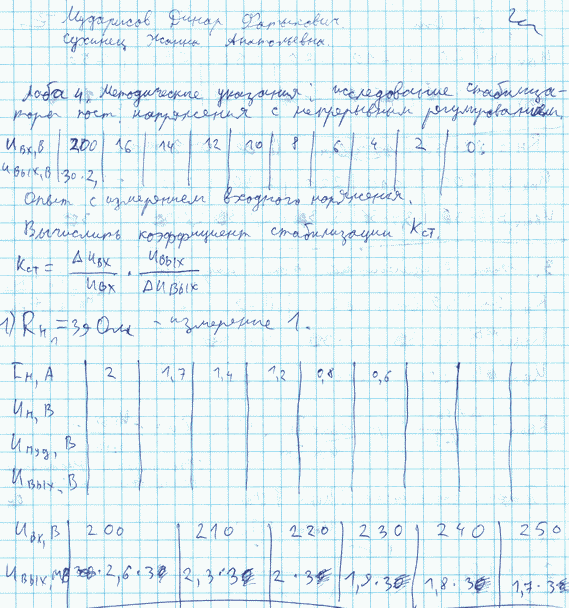 Мударисов Динар Фаритович
Сухинец Жанна Анатольевна
Лаба 4. Методические указания: исследование стабилиза-
тора пост. напряжения с непрерывным регулированием.
Uвх,В | 200 | 16 | 14 | 12 | 10 | 8 | 6 | 4 | 2 | 0
Uвых,В | 30·2,
Опыт с измерением входного напряжения.
Вычислить коэффициент стабилизации Kст.
Kст = ΔUвх / Uвх · Uвых / ΔUвых
1) Rн1 = 39 Ом - измерение 1.
Iн, А | 2 | 1,7 | 1,4 | 1,2 | 0,8 | 0,6
Uн, В
В
Uвых, В
Uвх,В | 200 | 210 | 220 | 230 | 240 | 250
Uвых, 2,6·3 | 2,3·3 | 2·3 | 1,9·3 | 1,8·3 | 1,7·3